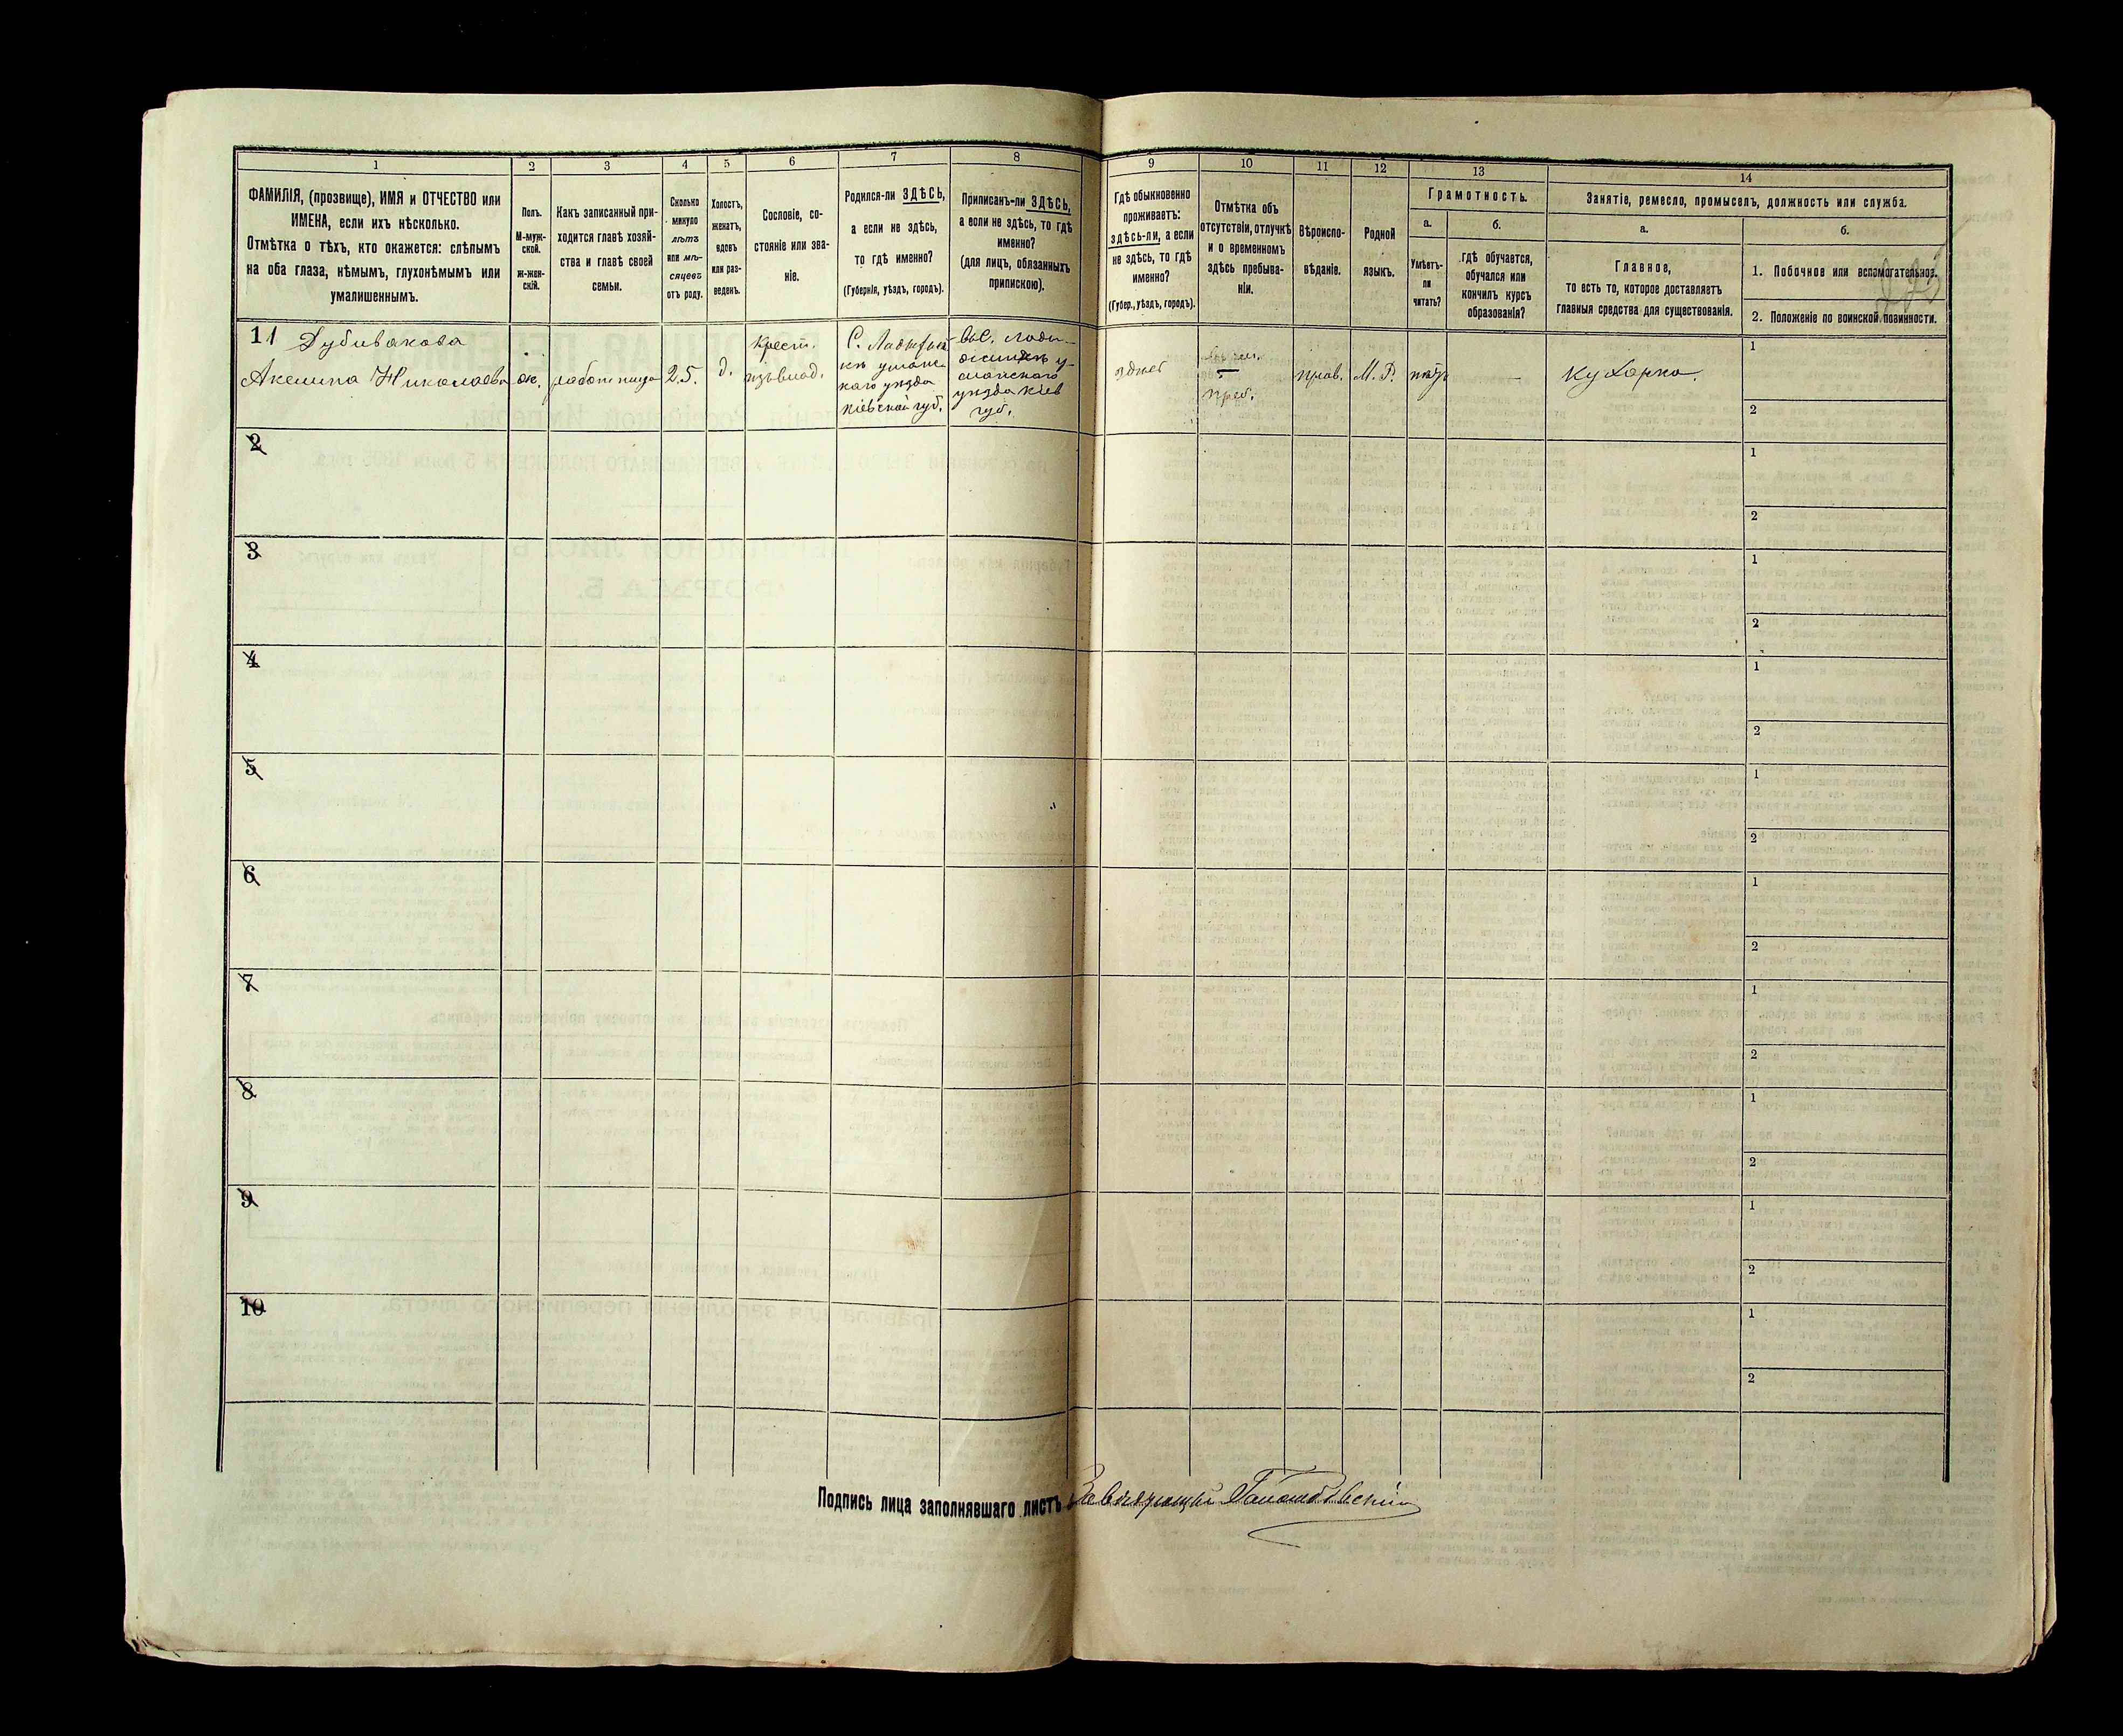 1 2 3 4 5 6 7 8 9 10 11 12 13 14
ФАМИЛІЯ, (прозвище), ИМЯ и ОТЧЕСТВО или
ИМЕНА, если ихъ нѣсколько.
Отмѣтка о тѣхъ, кто окажется: слѣпымъ
на оба глаза, нѣмымъ, глухонѣмымъ или
умалишеннымъ.
Полъ.
М-муж-
ской.
ж-жен-
скій.
Какъ записанный при-
ходится главѣ хозяй-
ства и главѣ своей
семьи.
Сколько
минуло
лѣтъ
или мѣ-
сяцевъ
отъ роду.
Холостъ,
женатъ,
вдовъ
или раз-
веденъ.
Сословіе, со-
стояніе или зва-
ніе.
Родился-ли ЗДѢСЬ,
а если не здѣсь,
то гдѣ именно?
(Губернія, уѣздъ, городъ).
Приписанъ-ли ЗДѢСЬ,
а если не здѣсь, то гдѣ
именно?
(для лицъ, обязанныхъ
припискою).
Гдѣ обыкновенно
проживаетъ:
здѣсь-ли, а если
не здѣсь, то гдѣ
именно?
(Губер., уѣздъ, городъ).
Отмѣтка объ
отсутствіи, отлучкѣ
и о временномъ
здѣсь пребыва-
ніи.
Вѣроиспо-
вѣданіе.
Родной
языкъ.
Грамотность.
а.
Умѣетъ-
ли
читать?
б.
гдѣ обучается,
обучался или
кончилъ курсъ
образованія?
Занятіе, ремесло, промыселъ, должность или служба.
а.
Главное,
то есть то, которое доставляетъ
главныя средства для существованія.
б.
1. Побочное или вспомогательное.
2. Положеніе по воинской повинности.
11 Дубивакова
Акелина Николаева
ж.
работница
25.
д.
Крест.
С.
каго уѣзда
Кіевской губ.
уѣзда Кіев
губ.
преб.
прав.
М. Р.
нѣтъ
—
Кухарка.
1
2
2
1
2
3
1
2
4
1
2
5
1
2
6
1
2
7
1
2
8
1
2
9
1
2
10
1
2
Подпись лица заполнявшаго листъ Завѣдующій